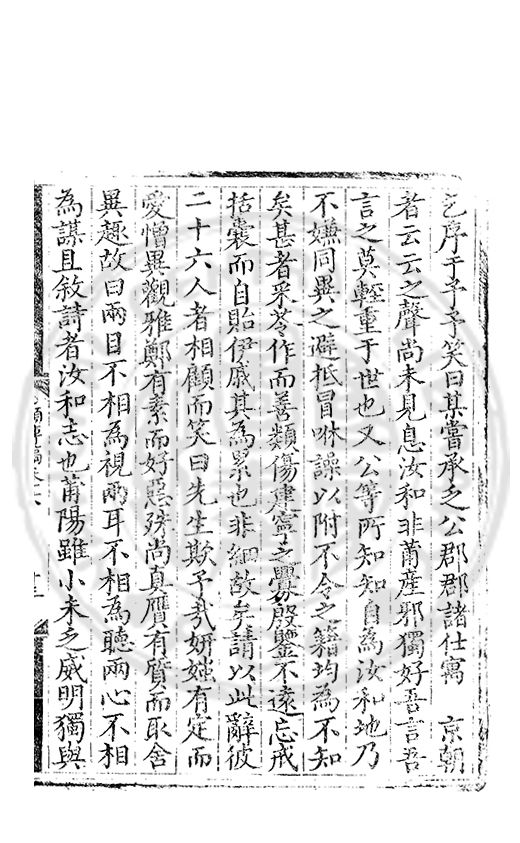 乞序于予予笑曰某嘗承乏公郡郡諸仕寓　京朝
者云云之聲尚未見息汝和非莆產邪獨好吾言吾
言之莫輕重于世也又公等所知知自為汝和地乃
不嫌同異之避抵冒咻譟以附不令之籍均為不知
矣甚者采苓作而善類傷建寧之釁殷鑒不遠忘戒
括囊而自貽伊戚其為累也非細故矣請以此辭彼
二十六人者相顧而笑曰先生欺予哉妍媸有定而
愛憎異觀雅鄭有素而好惡殊尚真贋有質而取舍
異趣故曰兩目不相為視兩耳不相為聽兩心不相
為謀且敘詩者汝和志也莆陽雖小未乏威明獨與